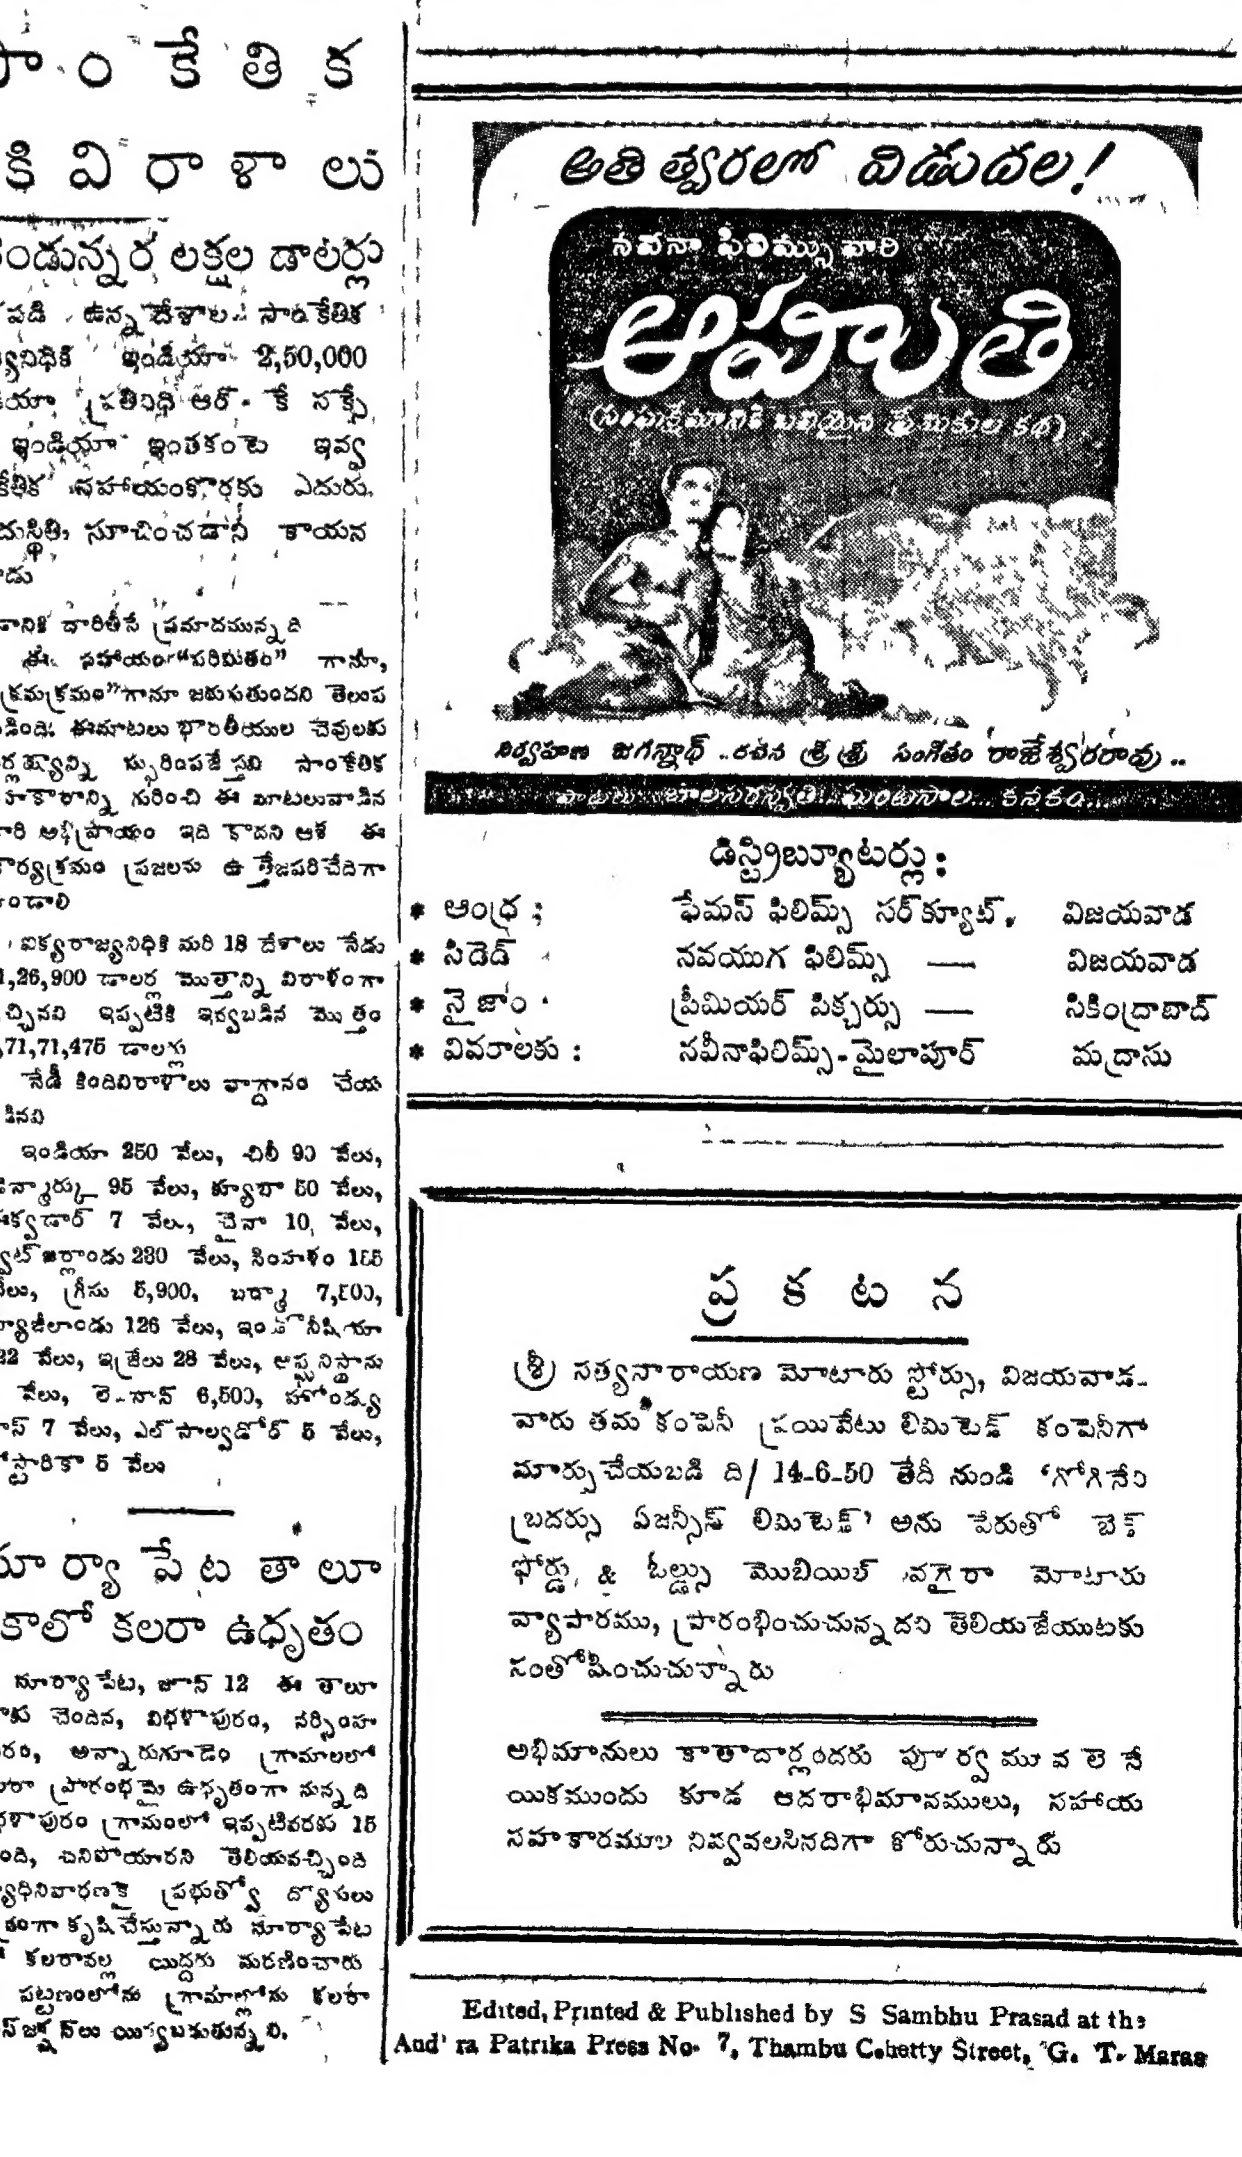 సాంకేతిక
కి విరాళాలు
రెండున్నర లక్షల డాలర్లు
పడి ఉన్న దేశాల సాంకేతిక
ఇండియా 2,50,000
ప్రతినిధి ఆర్. కే సక్సే
ఇండియా ఇంతకంటె ఇవ్వ
సహాయంకొరకు ఎదురు
సూచించడానీ కాయన
దారితీసే ప్రమాదమున్నది
ఈ సహాయం "పరిమితం" గానూ,
క్రమక్రమం"గానూ జరుపతుందని తెలుప
ఈమాటలు భారతీయుల చెవులకు
స్ఫురింపజేస్తవి సాంకేతిక
గురించి ఈ మాటలువాడిన
అభిప్రాయం ఇది కాదని ఆశ ఈ
ప్రజలను ఉత్తేజపరిచేదిగా
ఉండాలి
ఐక్యరాజ్యనిధికి మరి 18 దేశాలు నేడు
డాలర్ల మొత్తాన్ని విరాళంగా
ఇప్పటికి ఇవ్వబడిన మొత్తం
71,71,475 డాలర్లు
నేడీ కిందివిరాళాలు వాగ్దానం చేయ
ఇండియా 250 వేలు, చిలీ 90 వేలు,
95 వేలు, క్యూబా 50 వేలు,
7 వేలు, చైనా 10 వేలు,
230 వేలు, సింహళం
గ్రీసు 5,900, బర్మా
126 వేలు, ఇండోనీషియా
వేలు, ఇజ్రేలు 28 వేలు, ఆఫ్ఘనిస్థాను
వేలు, లెబనాన్ 6,500, హోండ్యూ
7 వేలు, ఎల్ సాల్వడోర్ 5 వేలు,
5 వేలు
సూర్యాపేట తాలూ
కాలో కలరా ఉధృతం
సూర్యాపేట, జూన్ 12 ఈ తాలూ
చెందిన, విభళాపురం, నర్సింహ
అన్నారుగూడెం గ్రామాలలో
ప్రారంభమై ఉధృతంగా నున్నది
గ్రామంలో ఇప్పటివరకు 15
చనిపోయారని తెలియవచ్చింది
ప్రభుత్వో ద్యోగులు
కృషిచేస్తున్నారు సూర్యాపేట
కలరావల్ల యిద్దరు మరణించారు
పట్టణంలోను గ్రామాల్లోను కలరా
యివ్వబడుతున్నవి.
అతి త్వరలో విడుదల!
నవీనా ఫిలిమ్సువారి
ఆహుతి
(సంఘక్షేమానికి బలియైన ప్రేమికుల కథ)
నిర్వహణ జగన్నాథ్ .. రచన శ్రీ శ్రీ సంగీతం రాజేశ్వరరావు ..
పాటలు : బాలసరస్వతి... ఘంటసాల... కనకం...
డిస్ట్రిబ్యూటర్లు :
* ఆంధ్ర ; ఫేమస్ ఫిలిమ్స్ సర్‌క్యూట్, విజయవాడ
* సిడెడ్ నవయుగ ఫిలిమ్స్ — విజయవాడ
* నైజాం ప్రీమియర్ పిక్చర్సు — సికింద్రాబాద్
* వివరాలకు : నవీనాఫిలిమ్స్-మైలాపూర్ మద్రాసు
ప్రకటన
శ్రీ సత్యనారాయణ మోటారు స్టోర్సు, విజయవాడ-
వారు తమ కంపెనీ ప్రయివేటు లిమిటెడ్ కంపెనీగా
మార్పుచేయబడి ది/ 14-6-50 తేదీ నుండి 'గోగినేని
బ్రదర్సు ఏజన్సీస్ లిమిటెడ్' అను పేరుతో బెడ్
ఫోర్డు, & ఓల్డ్సు మొబియిల్ వగైరా మోటారు
వ్యాపారము, ప్రారంభించుచున్నదని తెలియజేయుటకు
సంతోషించుచున్నారు
అభిమానులు కాతాదార్లందరు పూర్వమువలెనే
యికముందు కూడ ఆదరాభిమానములు, సహాయ
సహకారముల నివ్వవలసినదిగా కోరుచున్నారు
Edited, Printed & Published by S Sambhu Prasad at the
Andhra Patrika Press No. 7, Thambu Chetty Street, G. T. Maras